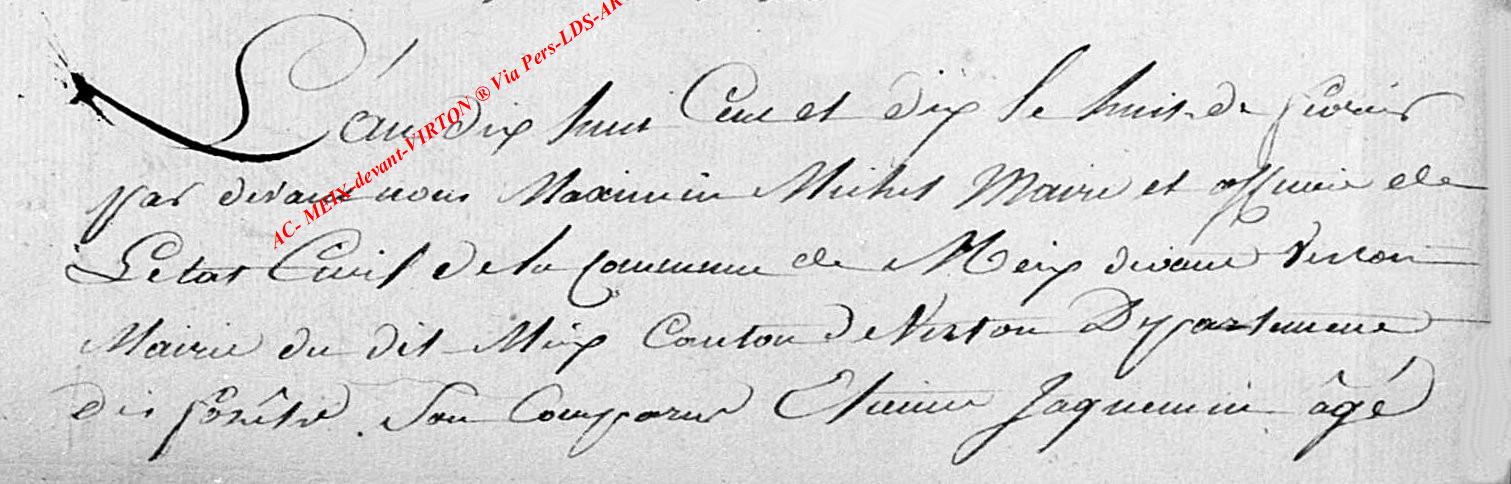 L'an dix huit Cent et dix le huit de fevrier
par devant nous Maximin Michel Maire et officier de
L'etat Civil de la Commune de Meix devant Virton
Mairie du dit Meix Canton de Virton Département
des forêts Son Comparus Etienne Jaquemin âgé
AC- MEIX-devant-VIRTON ® Via Pers-LDS-AR